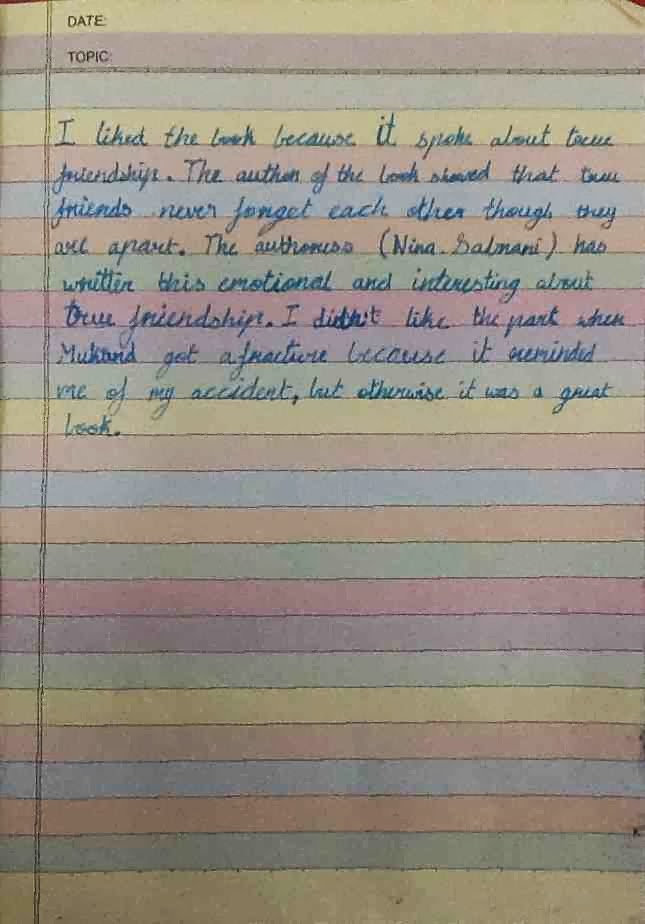 DATE:
TOPIC:
I liked the book because it spoke about true
friendship. The author of the book showed that true
friends never forget each other though they
are apart. The authoress (Nina Salnani) has
writter this emotional and interesting about
true friendship. I didn't like the part when
Mukand got a fracture because it reminded
me of my accident, but otherwise it was a great
book.